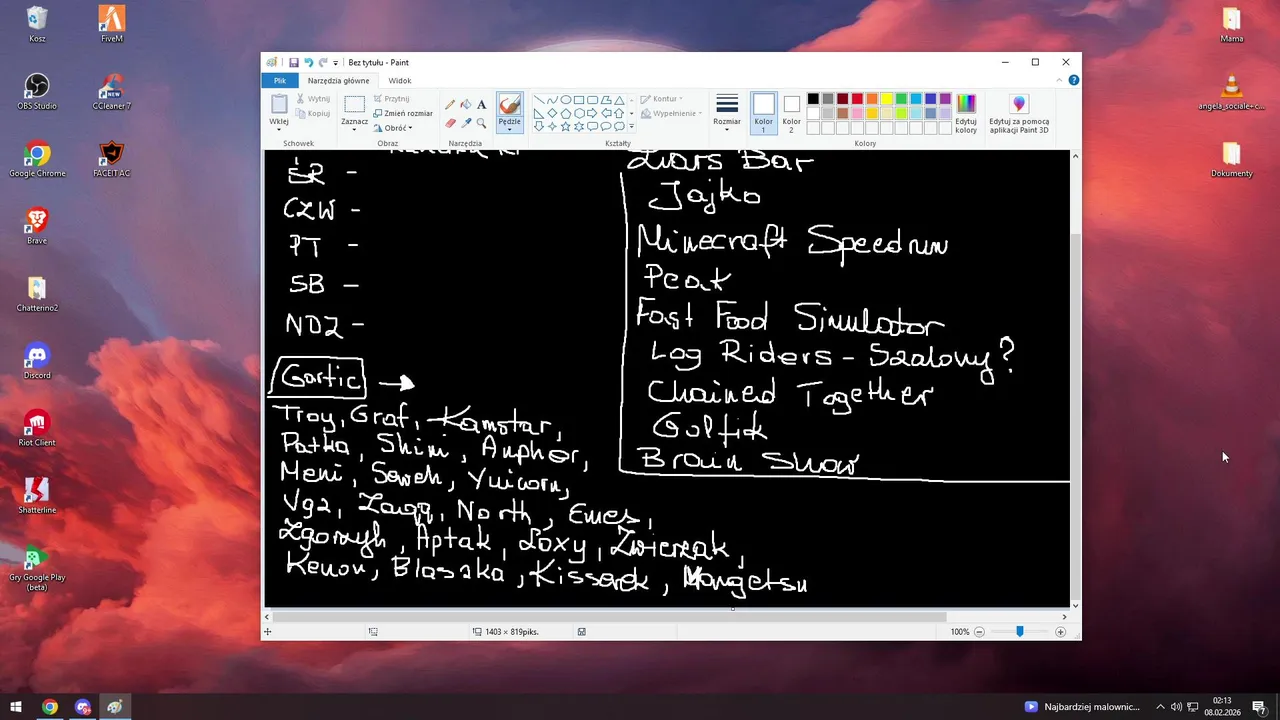 Kosz
FiveM
OBS Studio
CCleaner 7
Google Chrome
FACEIT AC
Brave
Chatterino2
Discord
Riot Client
Shatterline
Gry Google Play
(beta)
Bez tytułu - Paint
Plik
Narzędzia główne
Widok
Wklej
Wytnij
Kopiuj
Schowek
Zaznacz
Przytnij
Zmień rozmiar
Obróć
Obraz
Narzędzia
Pędzle
Kształty
Kontur
Wypełnienie
Rozmiar
Kolor
1
Kolor
2
Edytuj
kolory
Kolory
Edytuj za pomocą
aplikacji Paint 3D
ŚR -
CZW -
PT -
SB -
NDZ -
Gartic
Troy, Graf, Kamstar,
Patka, Shini, Anpher,
Meni, Soweh, Yuicorn,
Vg2, Zauqq, North, Emes,
Zgorzyh, Aptak, Loxy, Zwierzak,
Kenon, Blaszka, Kisserek, Mangetsu
Liars Bar
Jajko
Minecraft Speedrun
Peak
Fast Food Simulator
Log Riders - Szalony?
Chained Together
Golfik
Brain Show
1403 × 819piks.
100%
Mama
angela_sociale+c...
Dokumenty
Najbardziej malownic...
02:13
08.02.2026